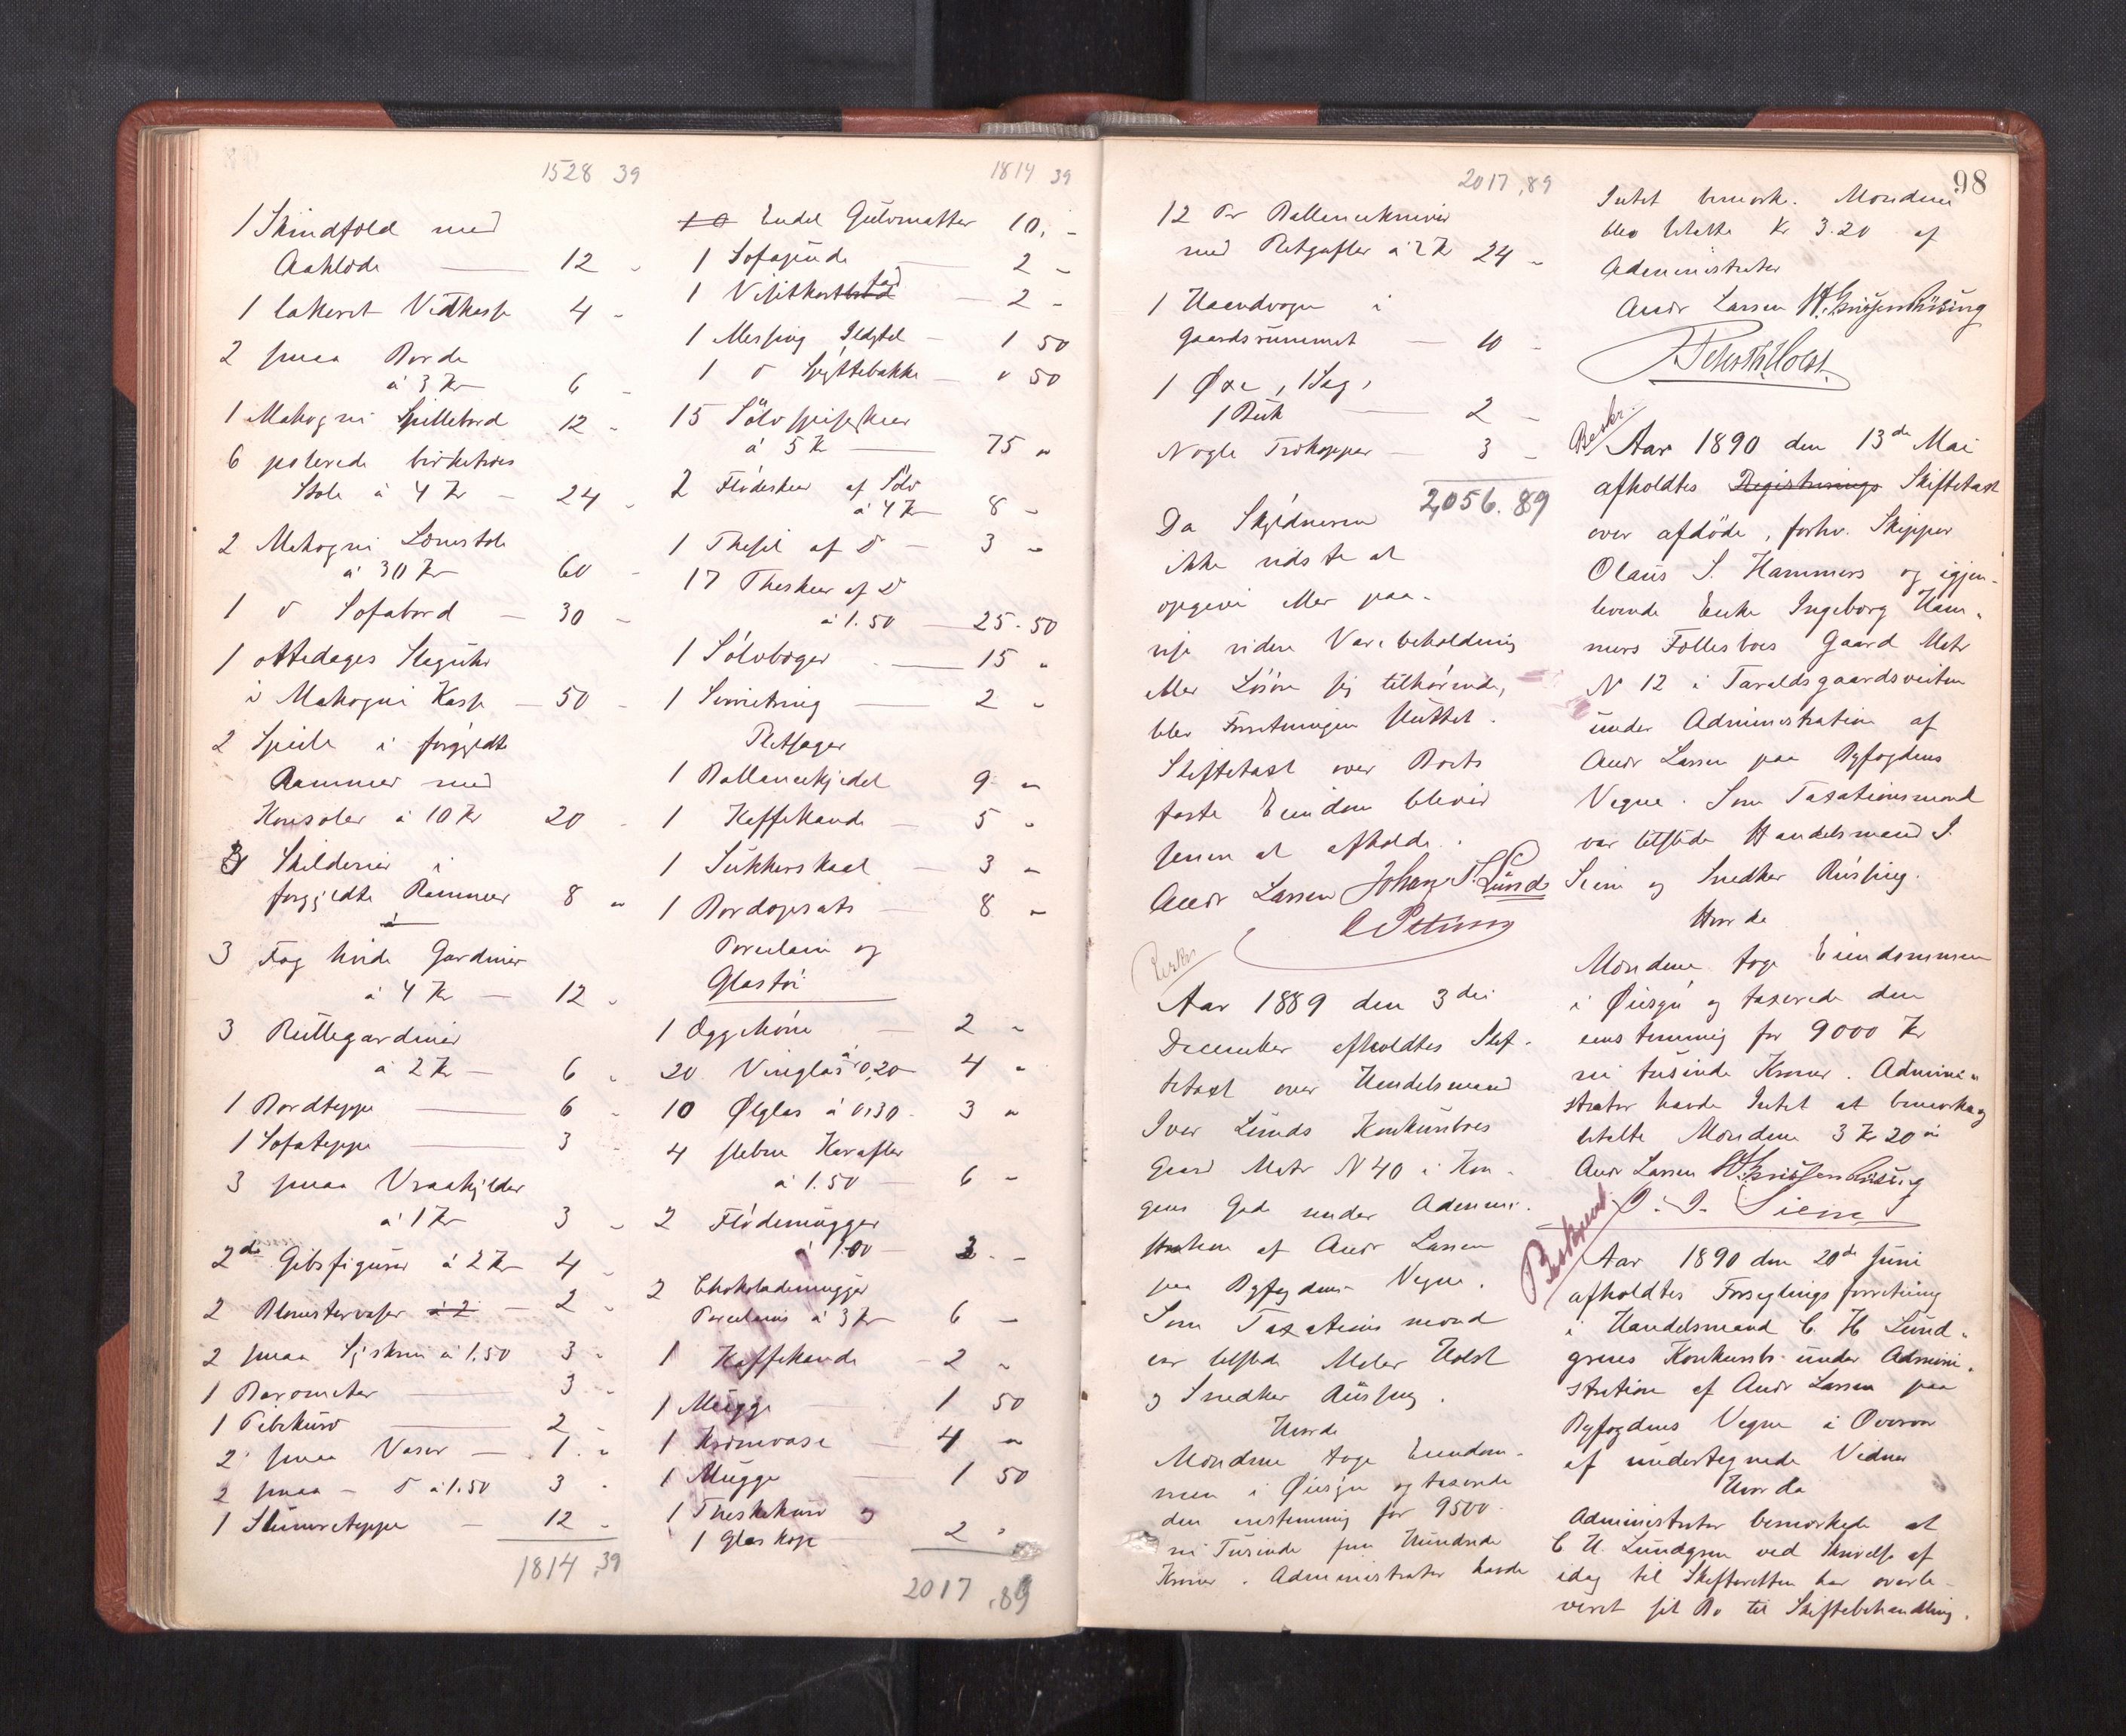 1528 39
1 Skindfeld med
Aaklæde — 12 -
1 lakeret Vedkasse 4 -
2 smaa Borde
à 3 Kr 6 -
1 Mahogni Spillebord 12 -
6 polerede birketræes
Stole à 4 Kr — 24 -
2 Mahogni Lænestole
à 30 Kr 60 -
1 do Sofabord — 30 -
1 ottedages Slaguhr
i Mahogni Kasse — 50 -
2 Speile i forgyldte
Rammer med
Konsoler à 10 Kr 20 -
3 Skilderier i
forgyldte Rammer 8 -
3 Fag hvide Gardiner
à 4 Kr — 12 -
3 Rullegardiner
à 2 Kr — 6 -
1 Bordteppe — 6 -
1 Sofateppe — 3 -
3 smaa
à 1 Kr 3 -
2de Gibsfigurer à 2 Kr 4 -
2 Blomstervaser à 2 — 2 -
2 smaa Syskrin à 1.50 3 -
1 Barometer — 3 -
1 Pibekurv — 2 -
2 smaa Vaser — 1 -
2 smaa - do à 1.50 3 -
1 Slumreteppe — 12 -
1814,39
1814 39
10 Endel Gulvmatter 10,-
1 Sofapude — 2 -
1 Visitkortfad — 2 -
1 Messing Ildtøl — 1 50
1 do Spyttebakke — " 50
15 Sölv spiseskeer
à 5 Kr — 75 -
2 Flödeskeer af Sölv
à 4 Kr 8 -
1 Thesil af do — 3 -
17 Theskeer af do
à 1.50 — 25.50
1 Sölvbæger — 15 -
1 Serviettring — 2 -
Pletsager
1 Ballancekjedel 9 -
1 Kaffekande — 5 -
1 Sukkerskaal — 3 -
1 Bordopsats — 8 -
Porcelain og
Glastöi
1 Æggehöne — 2 -
20 Vinglas à 0,20 4 -
10 Ølglas à 0,30 - 3 -
4 slebne Karafler
à 1.50 — 6 -
2 Flödemugger
à 1.00 — 2 -
2 Chokolademugger
Porcelains à 3 Kr 6 -
1 Kaffekande — 2 -
1 Mugge — 1 50
1 Kronvase — 4 -
1 Mugge — 1 50
1 og
1 Glaskop — 2 -
2017,89
2017,89
12 Par Ballanceknive
med Pletgafler à 2 Kr 24 -
1 Haandvogn i
Gaardsrummet — 10 -
1 Øxe, 1 Sag,
1 Buk — 2 -
Nogle Trækopper — 3 -
2,056.89
Da Skyldneren
ikke vidste at
opgive eller paa-
vise videre Varebeholdning
eller Lösöre sig tilhörende,
blev Forretningen sluttet.
Skiftetaxt over Boets
faste Eiendom blever
senere at afholde.
Andr Larsen Johan P. Lund
O Petersen
Aar 1889 den 3die
December afholdtes Skif-
tetaxt over Handelsmand
Iver Lunds Konkursboes
Gaard Matr N 40 i Kon-
gens Gade under Admini-
stration af Andr Larsen
paa Byfogdens Vegne.
Som Taxationsmænd
var tilstede Maler Holst
og Snedker Riising.
Hvorda
Mændene toge Eiendom-
men i Øiesyn og taxerede
den enstemmig for 9500
ni Tusinde fem Hundrede
Kroner. Administrator havde
98
Intet bemærk. Mændene
blev betalte Kr 3.20 af
Administrator
Andr Larsen
Peter Th. Holst.
Beskr.
Aar 1890 den 13de Mai
afholdtes Registrerings Skiftetaxt
over afdöde, forhv. Skipper
Olaus S. Hammers og igjen-
levende Enke Ingeborg Ham-
mers Fællesboes Gaard Matr
N 12 i Taraldsgaardsveiten
under Administration af
Andr Larsen paa Byfogdens
Vegne. Som Taxationsmænd
var tilstede Handelsmand J.
Siem og Snedker Riising.
Hvorda
Mændene toge Eiendommen
i Øiesyn og taxerede den
enstemmig for 9000 Kr
ni tusinde Kroner. Admini-
strator havde Intet at bemærke og
betalte Mændene 3 Kr 20 ør
Andr Larsen
J. J. Siem
Beskreved
Aar 1890 den 20de Juni
afholdtes Forseglingsforretning
i Handelsmand C. H. Lund-
grens Konkursbo under Admini-
stration af Andr Larsen paa
Byfogdens Vegne i Overvær
af undertegnede Vidner
Hvorda
Administrator bemærkede at
C H. Lundgren ved Skrivelse af
idag til Skifteretten har overle-
veret sit Bo til Skiftebehandling.